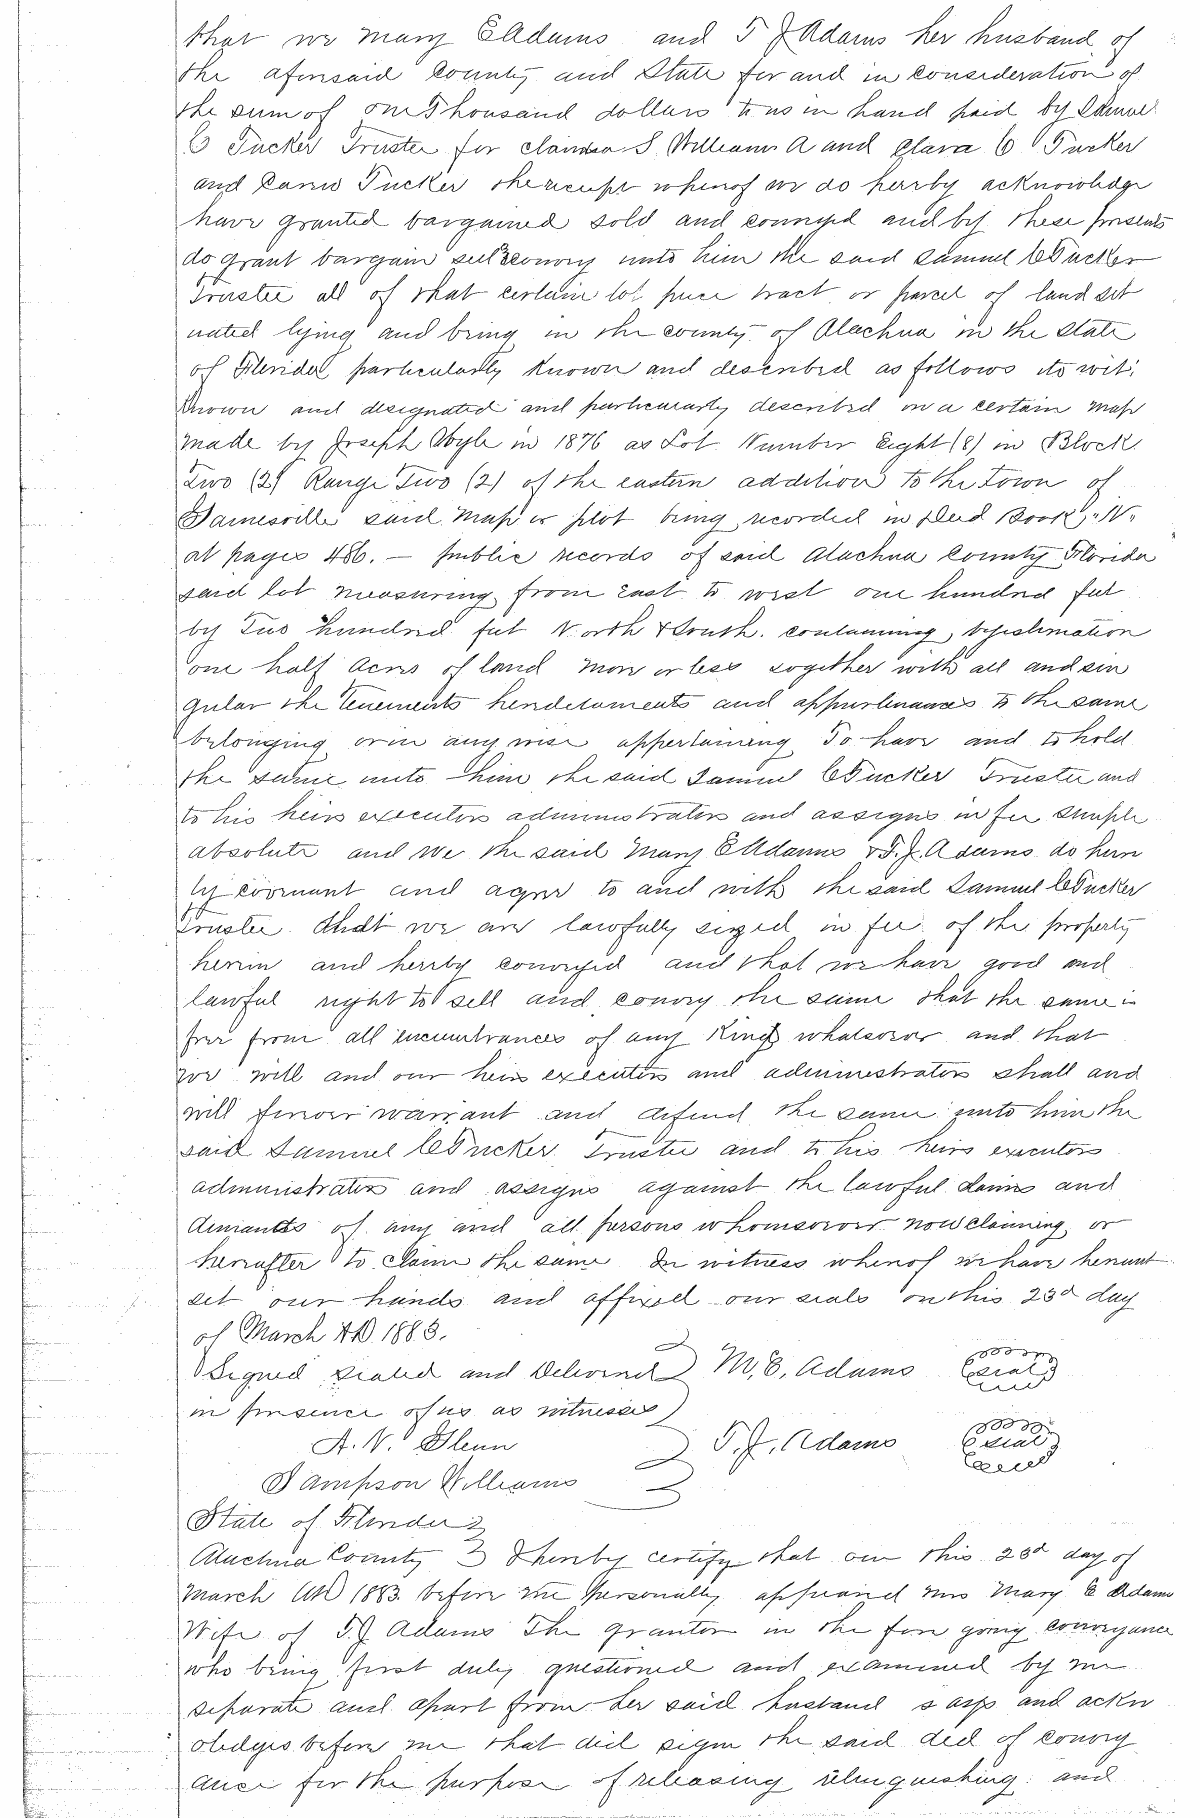 that we Mary E Adams and T J Adams her husband of
the aforesaid County and State for and in consideration of
the sum of one Thousand dollars to us in hand paid by Samuel
C Tucker Trustee for S. William A and Clara C Tucker
and Tucker the receipt whereof we do hereby acknowledge
have granted bargained sold and conveyed and by these presents
do grant bargain sell & convey unto him the said Samuel C Tucker
Trustee all of that certain lot piece tract or parcel of land sit
uated lying and being in the county of Alachua in the State
of Florida particularly known and described as follows to wit:
Known and designated and particularly described on a certain map
made by Joseph Voyle in 1876 as Lot Number Eight (8) in Block
Two (2) Range Two (2) of the eastern addition to the Town of
Gainesville said Map or plot being recorded in Deed Book "N"
at pages 486. — public records of said Alachua County Florida
said lot measuring from East to west one hundred feet
by Two hundred feet North & South. containing, by estimation
one half Acres of land more or less together with all and sin
gular the tenements hereditaments and appurtenances to the same
belonging or in any wise appertaining To have and to hold
the same unto him the said Samuel C Tucker Trustee and
to his heirs executors administrators and assigns in fee simple
absolute and we the said Mary E Adams & T. J. Adams do here
by covenant and agree to and with the said Samuel C Tucker
Trustee that we are lawfully seized in fee of the property
herein and hereby conveyed and that we have good and
lawful right to sell and convey the same that the same is
free from all encumbrances of any kind whatsoever and that
we will and our heirs executors and administrators shall and
will forever warrant and defend the same unto him the
said Samuel C Tucker Trustee and to his heirs executors
administrators and assigns against the lawful claims and
demands of any and all persons whomsoever now claiming or
hereafter to claim the same In witness whereof we have hereunt
set our hands and affixed our seals on this 23d day
of March AD 1883.
Signed sealed and Delivered M. E. Adams seal
in presence of us as witnesses
A. N. Glenn T. J. Adams seal
Sampson Williams
State of Florida
Alachua County I hereby certify that on this 23d day of
March AD 1883 before me personally appeared Mrs Mary E Adams
Wife of T. J Adams The grantor in the fore going conveyance
who being first duly questioned and examined by me
separate and apart from her said husband says and ackn
oledges before me that did sign the said deed of convey
ance for the purpose of releasing relinquishing and